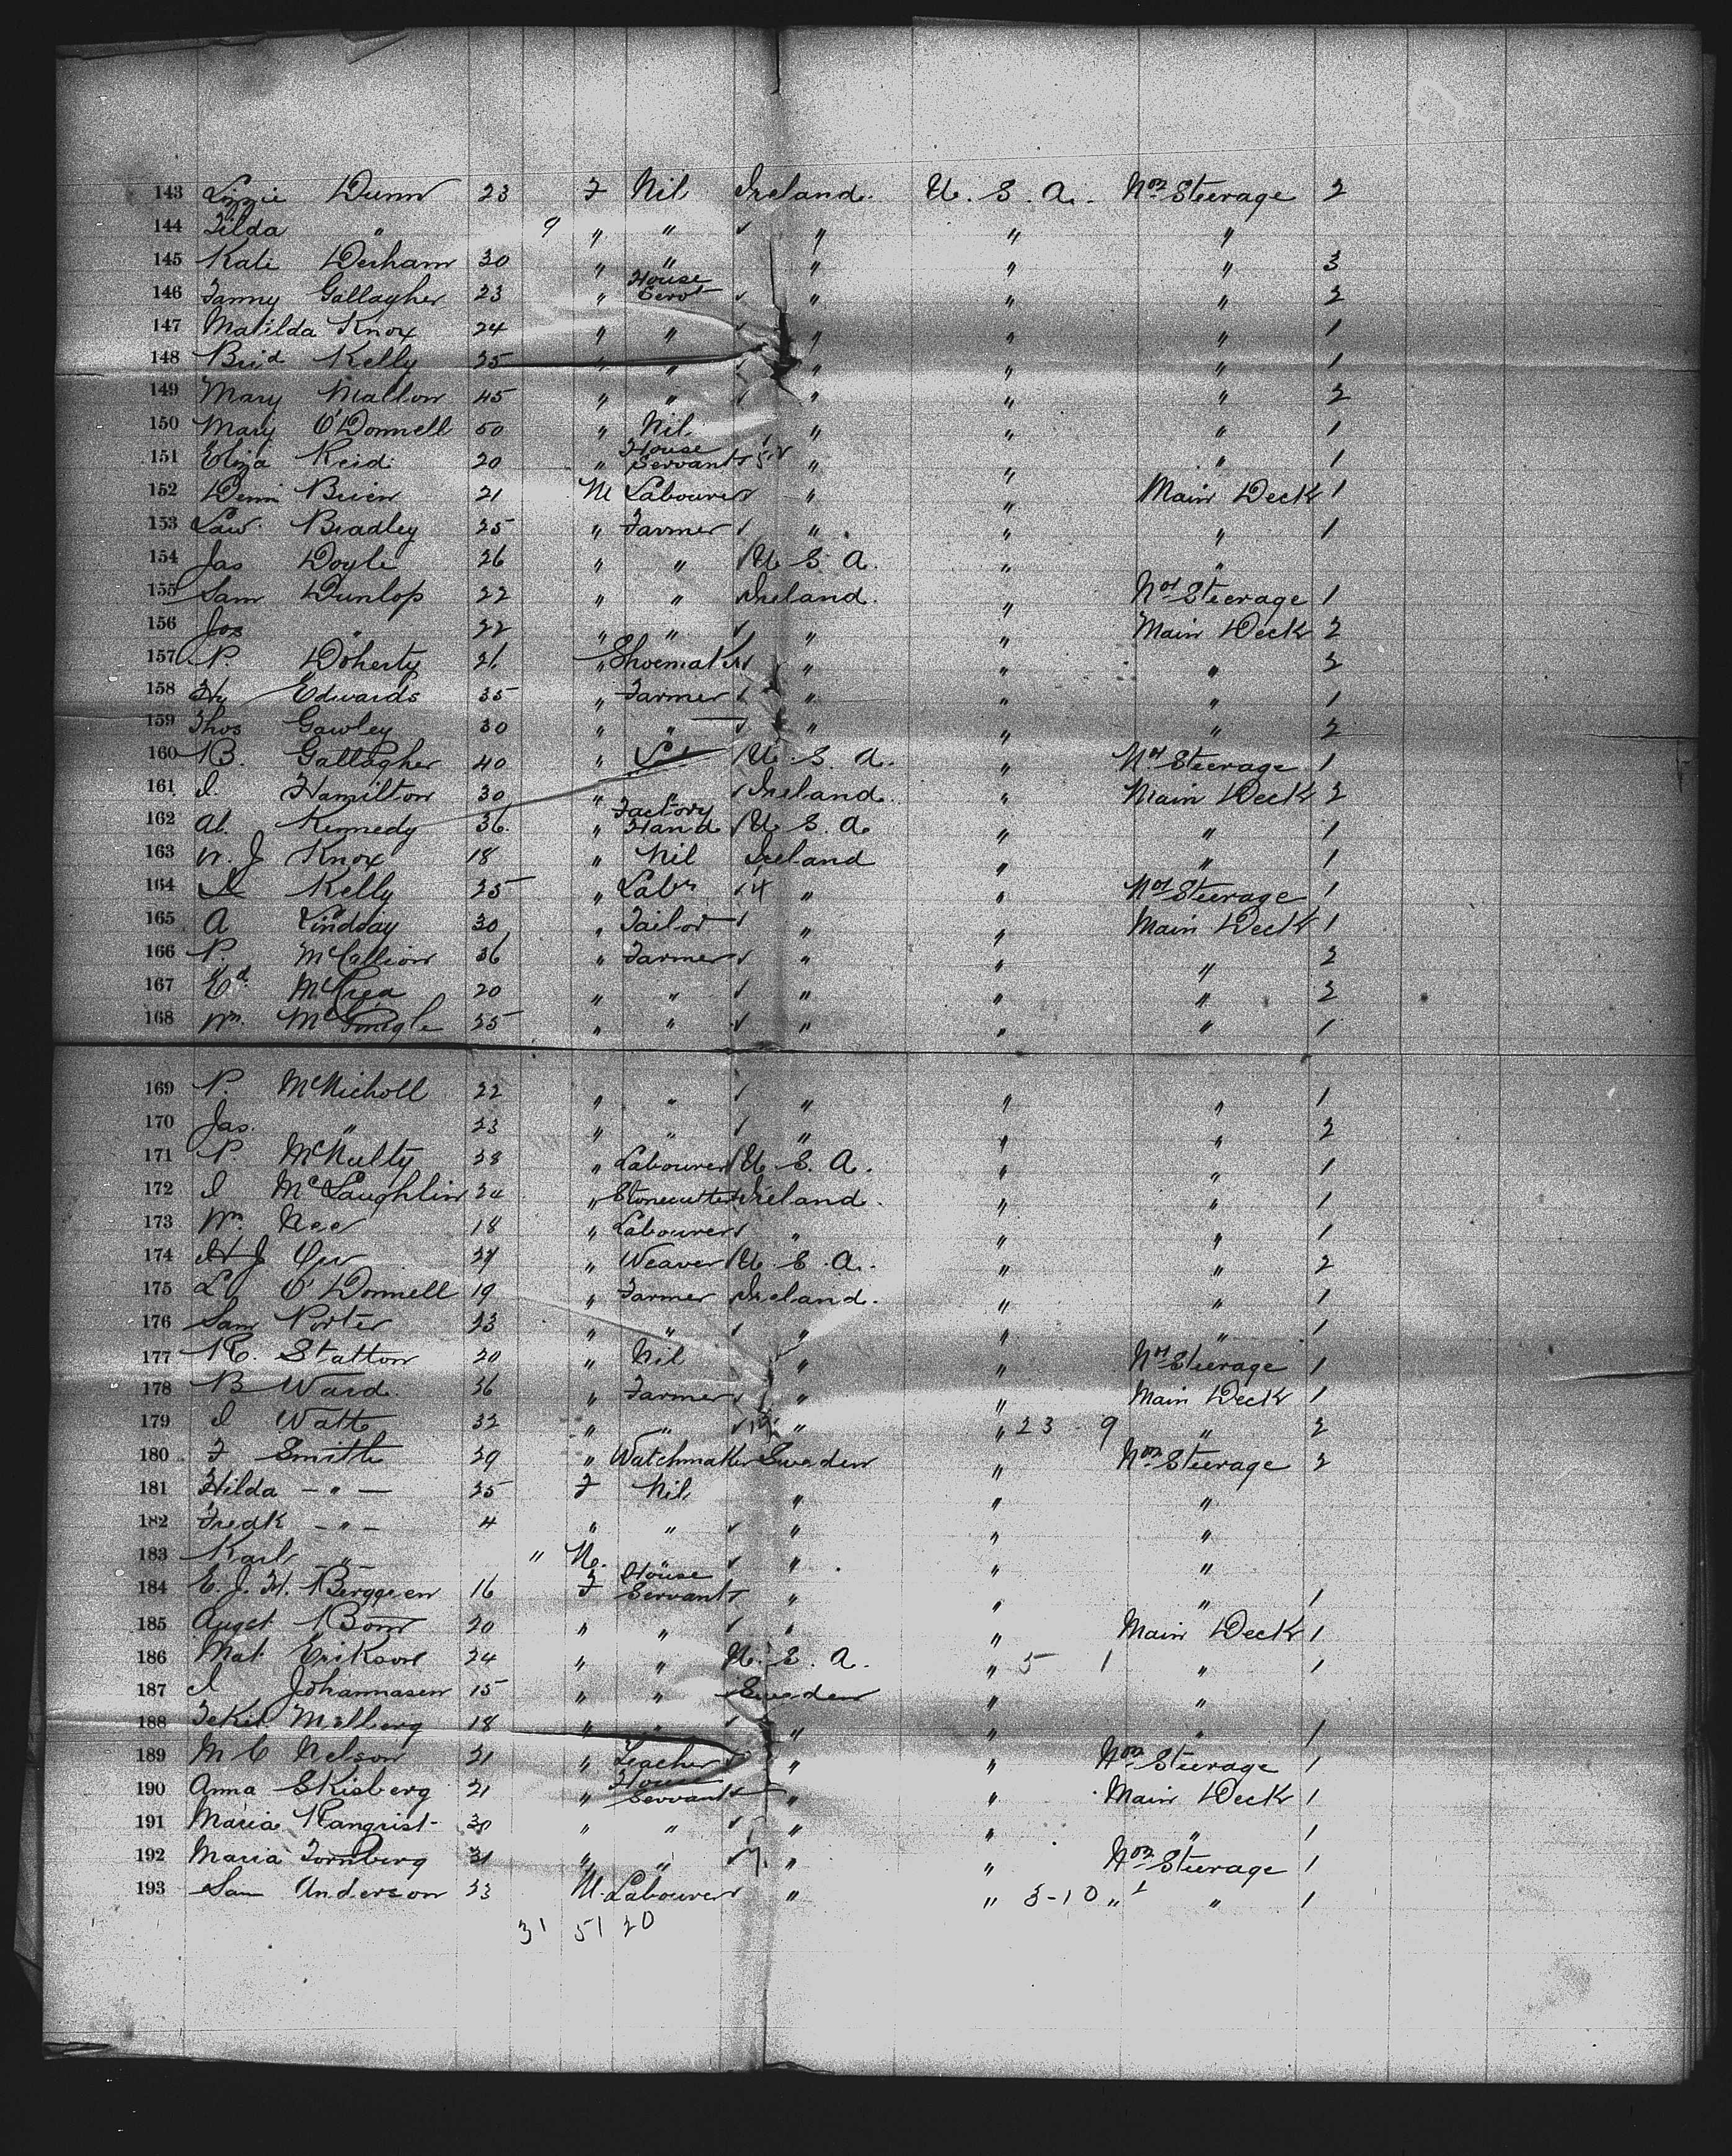 143 Lizzie Dunn 23 F Nil Ireland. U. S. A. No 2 Steerage 2
144 Tilda " 9 " " ✓ " " "
145 Kate Derham 30 " " " " " 3
146 Fanny Gallagher 23 " House Servt ✓ " " " 2
147 Matilda Knox 24 " " ✓ " " " 1
148 Brid Kelly 25 " " ✓ " " " 1
149 Mary Mallon 45 " " ✓ " " " 2
150 Mary O'Donnell 50 " Nil. " " " 1
151 Eliza Reid 20 " House Servant ✓ " " " 1
152 Denni Brien 21 M Labourer ✓ " " Main Deck 1
153 Law. Bradley 25 " Farmer ✓ " " " 1
154 Jas Doyle 26 " " ✓ U. S. A. " "
155 Sam Dunlop 22 " " ✓ Ireland. " No 1 Steerage 1
156 Jos " 22 " " ✓ " " Main Deck 2
157 P. Doherty 21 " Shoemaker ✓ " " " 2
158 Hy Edwards 35 " Farmer ✓ " " " 1
159 Thos Gawley 30 " " ✓ " " " 2
160 B. Gallagher 40 " ✓ U. S. A. " No 1 Steerage 1
161 J. Hamilton 30 " " ✓ Ireland. " Main Deck 2
162 Al. Kennedy 36. " Factory Hand ✓ U. S. A. " " 1
163 W. J Knox 18 " Nil Ireland " " 1
164 Kelly 25 " Labr ✓ 14 " " No 1 Steerage 1
165 A Lindsay 30 " Tailor ✓ " " Main Deck 1
166 P. McCallion 36 " Farmer ✓ " " " 2
167 Ed. McCrea 20 " " ✓ " " " 2
168 Wm. McGonigle 25 " " ✓ " " " 1
169 P. McNicholl 22 " " ✓ " " " 1
170 Jas. " 23 " " ✓ " " " 2
171 P. McNulty 38 " Labourer ✓ U. S. A. " " 1
172 J McLaughlin 24 " Stonecutter ✓ Ireland. " " 1
173 Wm. Nee 18 " Labourer ✓ " " " 1
174 J Orr " Weaver ✓ U. S. A. " " 2
175 L O'Donnell 19 " Farmer Ireland. " " 1
176 Sam Porter 23 " " ✓ " " " 1
177 R. Statton 20 " Nil " " No 1 Steerage 1
178 B Ward. 36 " Farmer ✓ " " Main Deck 1
179 J Watts 32 " " ✓ " " 23 9 " 2
180 F Smith 29 " Watchmaker Sweden " No 2 Steerage 2
181 Hilda - " - 25 F Nil " " "
182 Fredk - " - 4 " " ✓ " " "
183 Karl - " - " M. ✓ " " "
184 E. J. H. Berggren 16 F House Servant ✓ " " " 1
185 Augst Bom 20 " " ✓ " " Main Deck 1
186 Mat. Erikson 24 " " U. S. A. " 5 1 " 1
187 J Johannasen 15 " " Sweden " "
188 Tekil Millberg 18 " " ✓ " " " 1
189 M C Nelson 21 " Teacher ✓ " " No 2 Steerage 1
190 Anna Skisberg 21 " House Servant ✓ " " Main Deck 1
191 Maria Ranqrist 30 " " ✓ " " " 1
192 Maria Tornberg 31 " " ✓ 7. " " No 2 Steerage 1
193 Sam Anderson 33 M. Labourer ✓ " " 3-10 " 1 " 1
31 51 20